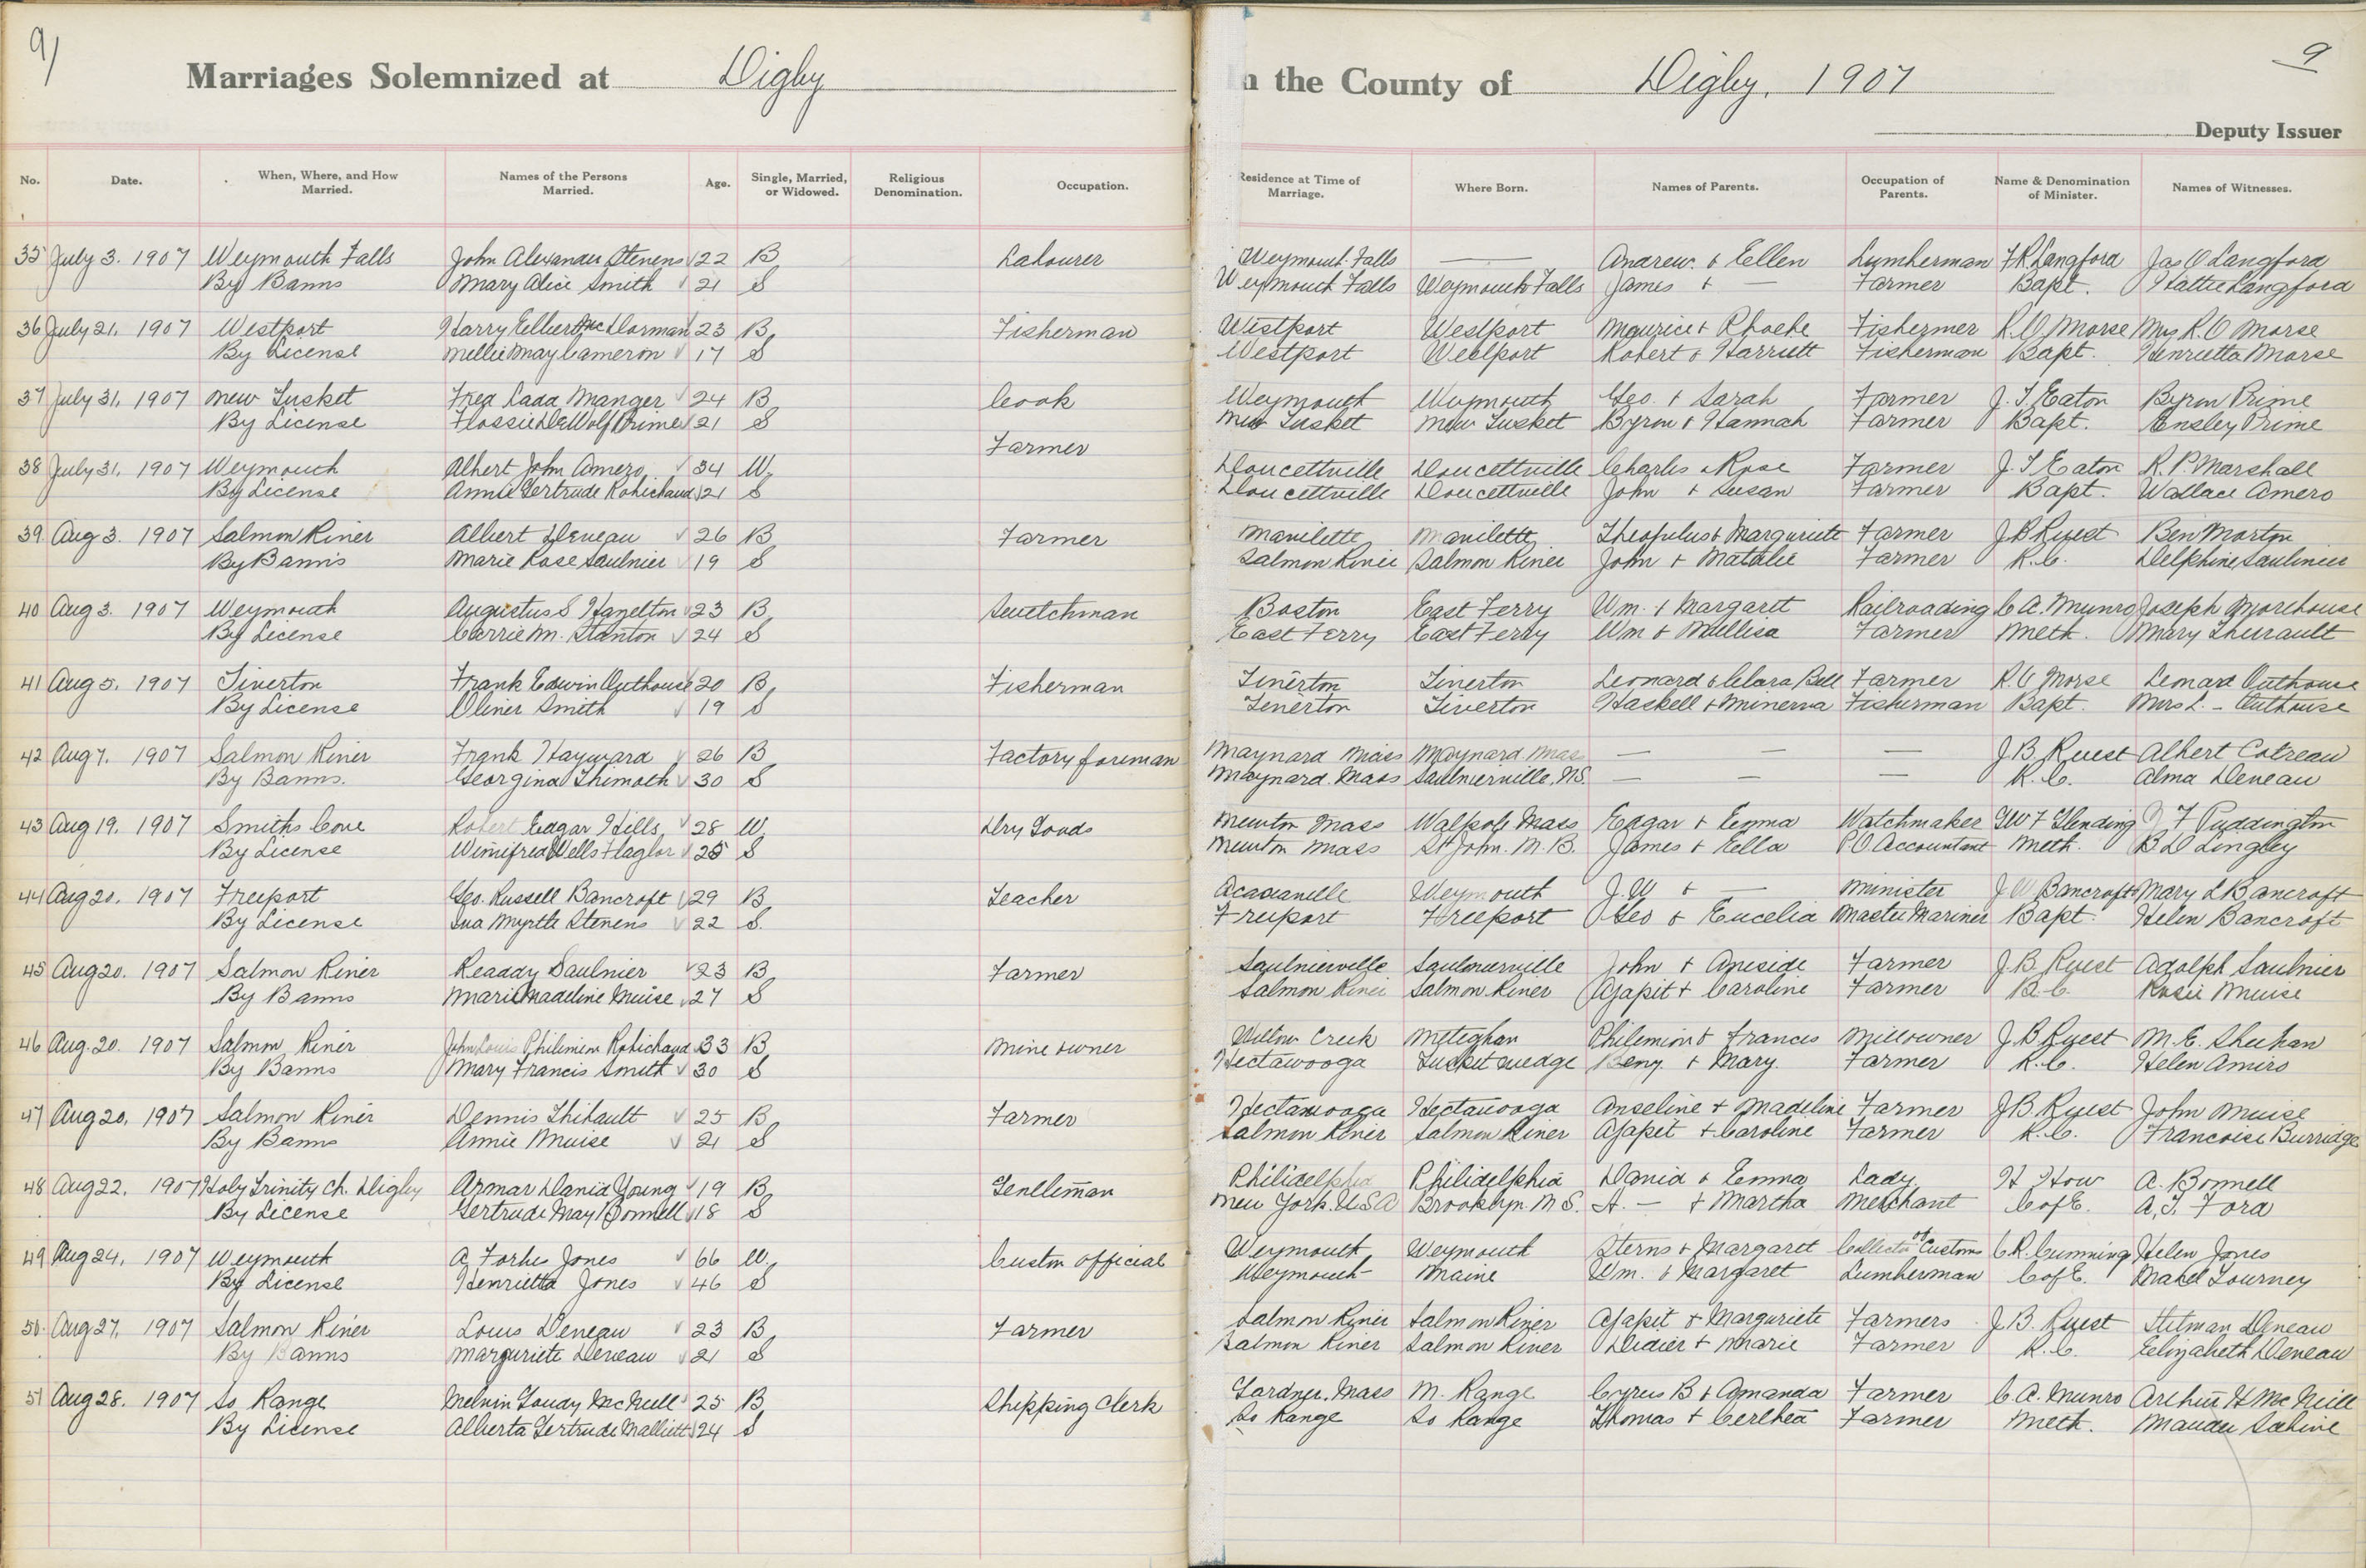 9
9
Marriages Solemnized at Digby
n the County of Digby, 1907
Deputy Issuer
No. Date. When, Where, and How Married. Names of the Persons Married. Age. Single, Married, or Widowed. Religious Denomination. Occupation. Residence at Time of Marriage. Where Born. Names of Parents. Occupation of Parents. Name & Denomination of Minister. Names of Witnesses.
35 July 3. 1907 Weymouth Falls John Alexander Stevens 22 B Labourer Weymouth Falls — Andrew & Ellen Lumberman F R Langford Jas O Langford
By Banns Mary Alice Smith 21 S Weymouth Falls Weymouth Falls James & — Farmer Bapt. Hattie Langford
36 July 21. 1907 Westport Harry Elbert McDorman 23 B Fisherman Westport Westport Maurice & Phoebe Fishermer R. O Morse Mrs R. O Morse
By License Mellie May Cameron 17 S Westport Westport Robert & Harriett Fisherman Bapt. Henrietta Morse
37 July 31. 1907 New Tusket Fred Ladd Manger 24 B Cook Weymouth Weymouth Geo. & Sarah Farmer J. T. Eaton Byron Prime
By License Flossie DeWolf Prime 21 S New Tusket New Tusket Byron & Hannah Farmer Bapt. Ensley Prime
Farmer
38 July 31. 1907 Weymouth Albert John Amero 34 W. Doucettville Doucettville Charles & Rose Farmer J. T. Eaton R. P. Marshall
By License Annie Gertrude Robichaud 21 S Doucettville Doucettville John & Susan Farmer Bapt. Wallace Amero
39 Aug 3. 1907 Salmon River Albert Deveau 26 B Farmer Mavilette Mavilette Theopulus & Marguriete Farmer J B Ruest Ben Morton
By Banns Marie Rose Saulnier 19 S Salmon River Salmon River John & Matalie Farmer R. C. Delphine Saulnier
40 Aug 3. 1907 Weymouth Augustus S Hazelton 23 B Switchman Boston East Ferry Wm. & Margaret Railroading C A. Munro Joseph Morehouse
By License Carrie M. Stanton 24 S East Ferry East Ferry Wm & Mellisa Farmer Meth. Mary Theirault
41 Aug 5. 1907 Tiverton Frank Edwin Outhouse 20 B Fisherman Tiverton Tiverton Leonard & Clara Bell Farmer R. O Morse Leonard Outhouse
By License Oliver Smith 19 S Tiverton Tiverton Haskell & Minerva Fisherman Bapt. Mrs L. – Outhouse
42 Aug 7. 1907 Salmon River Frank Hayward 26 B Factory foreman Maynard Mass Maynard Mass — — — J B Ruest Albert Cotreau
By Banns. Georgina Thimoth 30 S Maynard. Mass Saulnierville, N.S. — — — R. C. Alma Deveau
43 Aug 19. 1907 Smiths Cove Robert Edgar Hills 28 W. Dry Goods Newton Mass Walpole Mass Edgar & Emma Watchmaker G W F Glending F Puddington
By License Winnifred Wells Flaglor 25 S Newton Mass St John. N. B. James & Ella P. O. Accountant Meth. B D Lingley
44 Aug 20. 1907 Freeport Geo. Russell Bancroft 29 B Teacher Acadiaville Weymouth J. W & — Minister J W Bancroft Mary L Bancroft
By License Iva Myrtle Stevens 22 S. Freeport Freeport Geo & Eucelia Master Mariner Bapt. Helen Bancroft
45 Aug 20. 1907 Salmon River Readdy Saulnier 23 B Farmer Saulnierville Saulnierville John & Aneside Farmer J. B Ruest Adolph Saulnier
By Banns Marie Madeline Muise 27 S Salmon River Salmon River Agapit & Caroline Farmer R. C. Rosie Muise
46 Aug. 20. 1907 Salmon River John Louis Philimion Robichaud 33 B Mine owner Willow Creek Meteghan Philemion & Frances Millowner J B Ruest M. E. Sheehan
By Banns Mary Francis Smith 30 S Hectawooga Tusket Wedge Benj. & Mary. Farmer R. C. Helen Amiro
47 Aug 20. 1907 Salmon River Dennis Thibault 25 B Farmer Hectanooga Hectanooga Anseline & Madeline Farmer J B. Ruest John Muise
By Banns Annie Muise 21 S Salmon River Salmon River Agapit & Caroline Farmer R. C. Francoise Burridge
48 Aug 22. 1907 Holy Trinity Ch. Digby Armar David Young 19 B Gentleman Philidelphia Philidelphia David & Emma Lady H How A. Bonnell
By License Gertrude May Bonnell 18 S New York. U S A Brooklyn. N S. A. — & Martha Merchant C of E. A. T. Ford
49 Aug 24. 1907 Weymouth A Forbes Jones 66 W. Custom official Weymouth Weymouth Sterns & Margaret Collector of Customs C. R. Cumming Helen Jones
By License Henrietta Jones 46 S Weymouth Maine Wm. & Margaret Lumberman C of E. Mabel Journey
50. Aug 27. 1907 Salmon River Louis Deveau 23 B Farmer Salmon River Salmon River Agapit & Marguriete Farmers J B. Ruest Stilman Deveau
By Banns Marguriete Deveau 21 S Salmon River Salmon River Didier & Marie Farmer R. C. Elizabeth Deveau
51 Aug 28. 1907 So Range Melvin Goudy McNeill 25 B Shipping Clerk Gardner. Mass N. Range Cyrus B & Amanda Farmer C A. Munro Arthur H McNeill
By License Alberta Gertrude Mallett 24 S So Range So Range Thomas & Berthea Farmer Meth. Maude Sabine